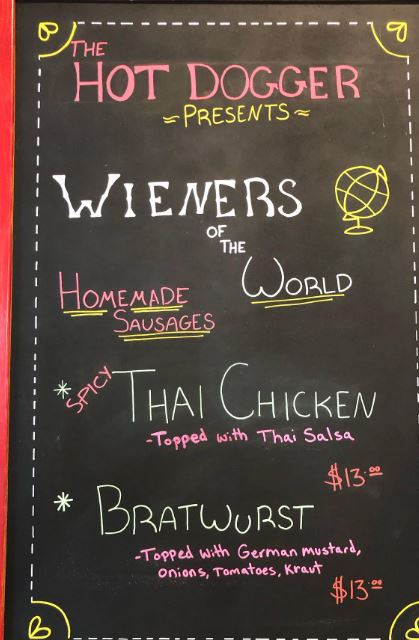 THE
HOT DOGGER
≈PRESENTS≈
WIENERS
OF
THE
WORLD
HOMEMADE
SAUSAGES
* SPICY THAI CHICKEN
-Topped with Thai Salsa
$13.00
* BRATWURST
-Topped with German mustard,
onions, Tomatoes, Kraut
$13.00